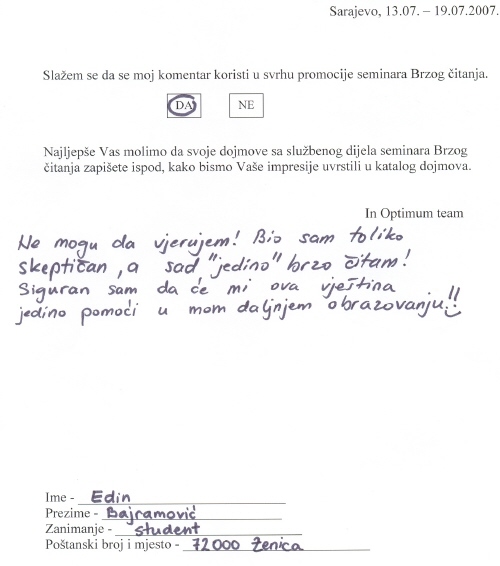 Sarajevo, 13.07. – 19.07.2007.
Slažem se da se moj komentar koristi u svrhu promocije seminara Brzog čitanja.
DA NE
Najljepše Vas molimo da svoje dojmove sa službenog dijela seminara Brzog
čitanja zapišete ispod, kako bismo Vaše impresije uvrstili u katalog dojmova.
In Optimum team
Ne mogu da vjerujem! Bio sam toliko
skeptičan, a sad "jedino" brzo čitam!
Siguran sam da će mi ova vještina
jedino pomoći u mom daljnjem obrazovanju!!
Ime - Edin
Prezime - Bajramović
Zanimanje - student
Poštanski broj i mjesto - 72000 Zenica